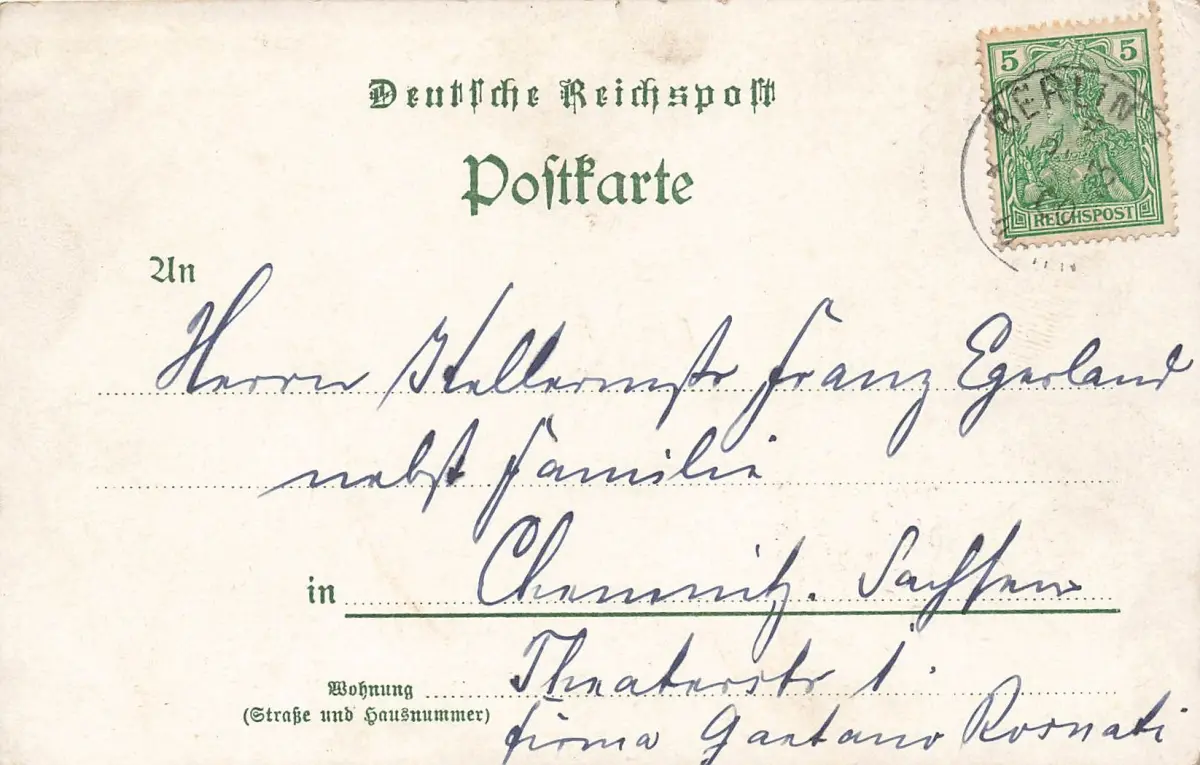 5 5
BERLIN
REICHSPOST
Deutsche Reichspost
Postkarte
An
Herrn Kellermstr Franz Egerland
nebst Familie
in Chemnitz. Sachsen
Wohnung Theaterstr 1.
(Straße und Hausnummer)
firma Gaetano Rosnati